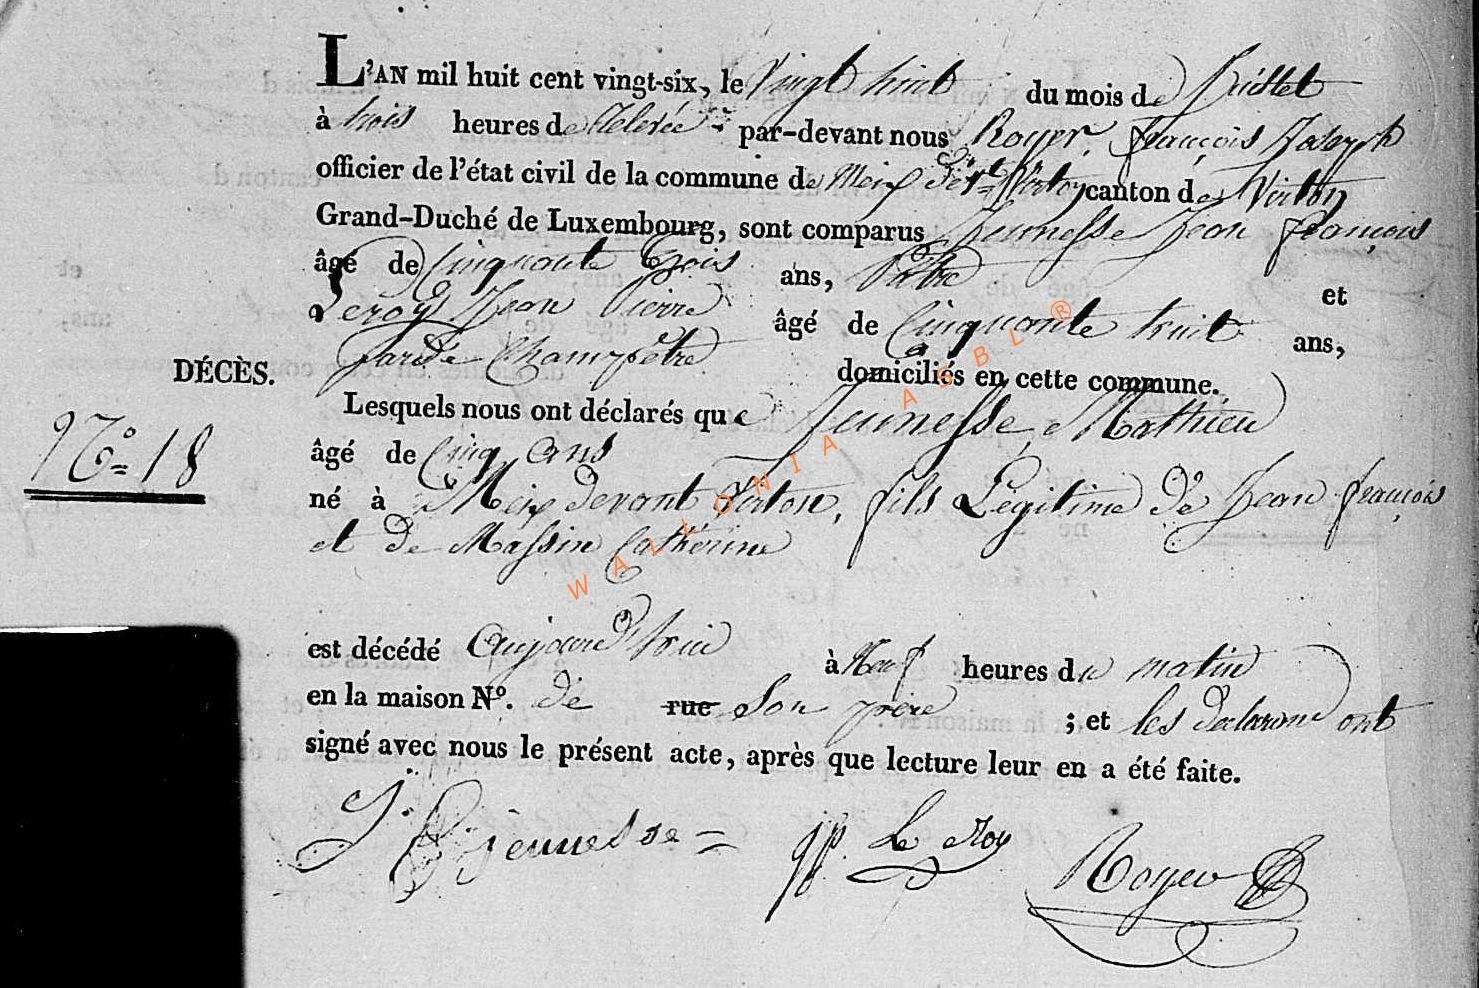 L'AN mil huit cent vingt-six, le Vingt huit du mois de Juillet
à trois heures de Relevée par-devant nous Royer, François Joseph
officier de l'état civil de la commune de Meix dvt Virton canton de Virton
Grand-Duché de Luxembourg, sont comparus Jeunesse Jean François
âgé de Cinquante trois ans, Patre et
Leroy Jean Pierre âgé de Cinquante huit ans,
Garde Champêtre domiciliés en cette commune.
DÉCÈS.
Lesquels nous ont déclarés que Jeunesse, Mathieu
N.º 18
âgé de Cinq ans
né à Meix devant Virton, fils Légitime de Jean François
et de Massin Catherine
est décédé aujourd'hui à Neuf heures du matin
en la maison Nº. de rue Son père ; et les declarans ont
signé avec nous le présent acte, après que lecture leur en a été faite.
J. f. jeunesse JP. Le Roy Royer
WALLONIA ASBL ®